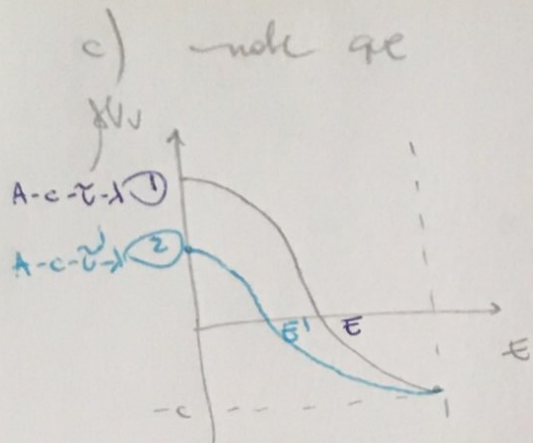 c) note que
γVv
A-c-τ-λ ①
A-c-τ'-λ ②
E' E
t
-c
1